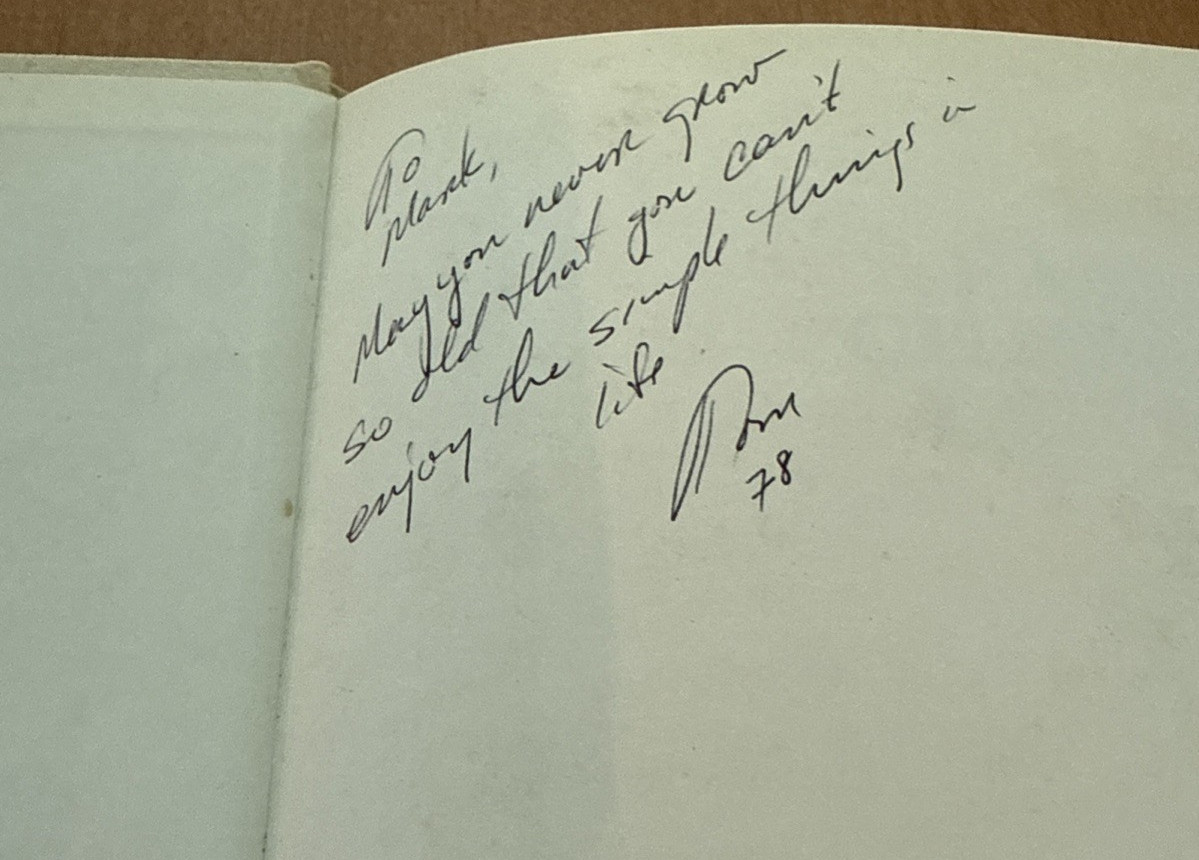 To
Mark,
May you never grow
so old that you can't
enjoy the simple things in
life
Tom
78